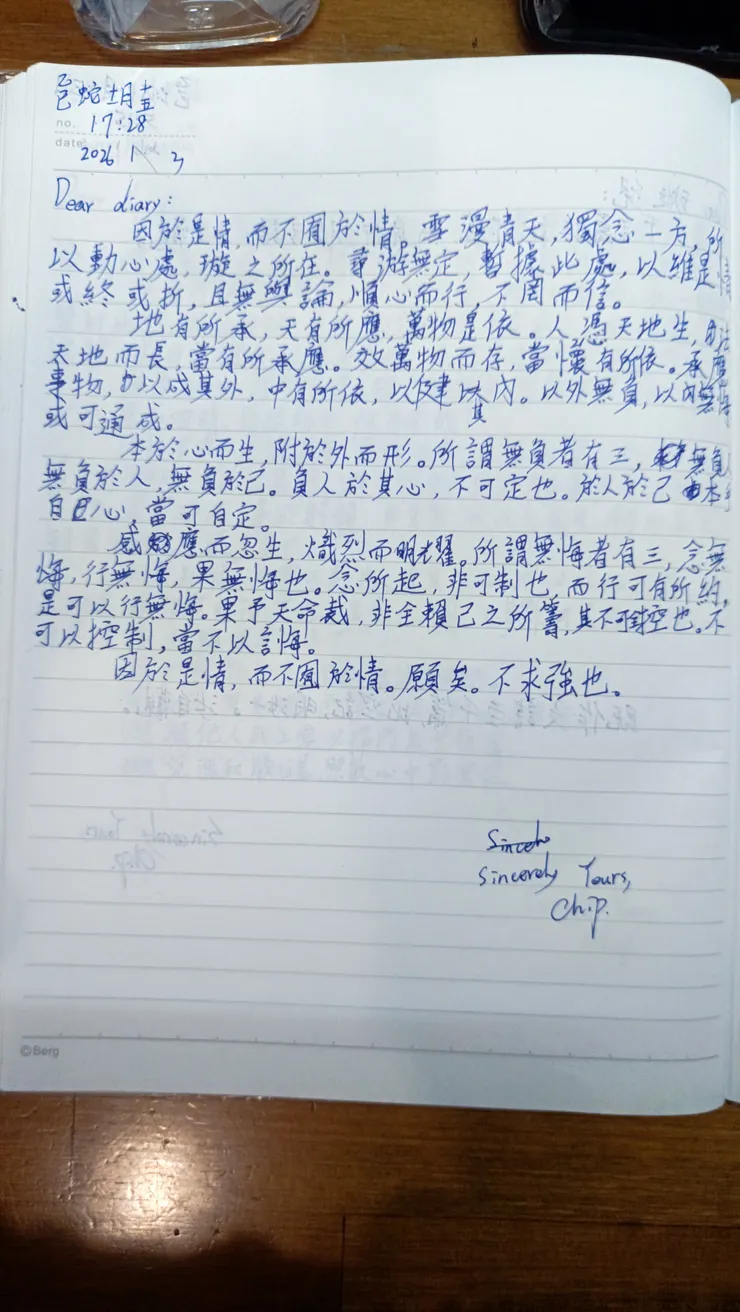 乙巳蛇 十一月十五
no. 17:28
date 2026 1 3
Dear diary:
因於是情,而不囿於情。雲漫青天,獨念一方,所
以動心處,璇之所在。尋游無定,暫據此處,以維是情
或終或折,且無與論,順心而行,不罔而信。
地有所承,天有所應,萬物是依。人憑天地生,
天地而長,當有所承應。效萬物而存,當懷有所依。承應
事物,力以成其外,中有所依,以建其內。以外無負,以內無悔
或可通成。
本於心而生,附於外而形。所謂無負者有三,無負
無負於人,無負於己。負人於其心,不可定也。於人於己 本
自己心,當可自定。
感應而忽生,熾烈而明耀。所謂無悔者有三,念無
悔,行無悔,果無悔也。念所起,非可制也,而行可有所約,
是可以行無悔。果予天命裁,非全賴己之所籌,其不可控也。不
可以控制,當不以言悔!
因於是情,而不囿於情。願矣。不求強也。
Sincerely Yours,
Chip.
©Berg